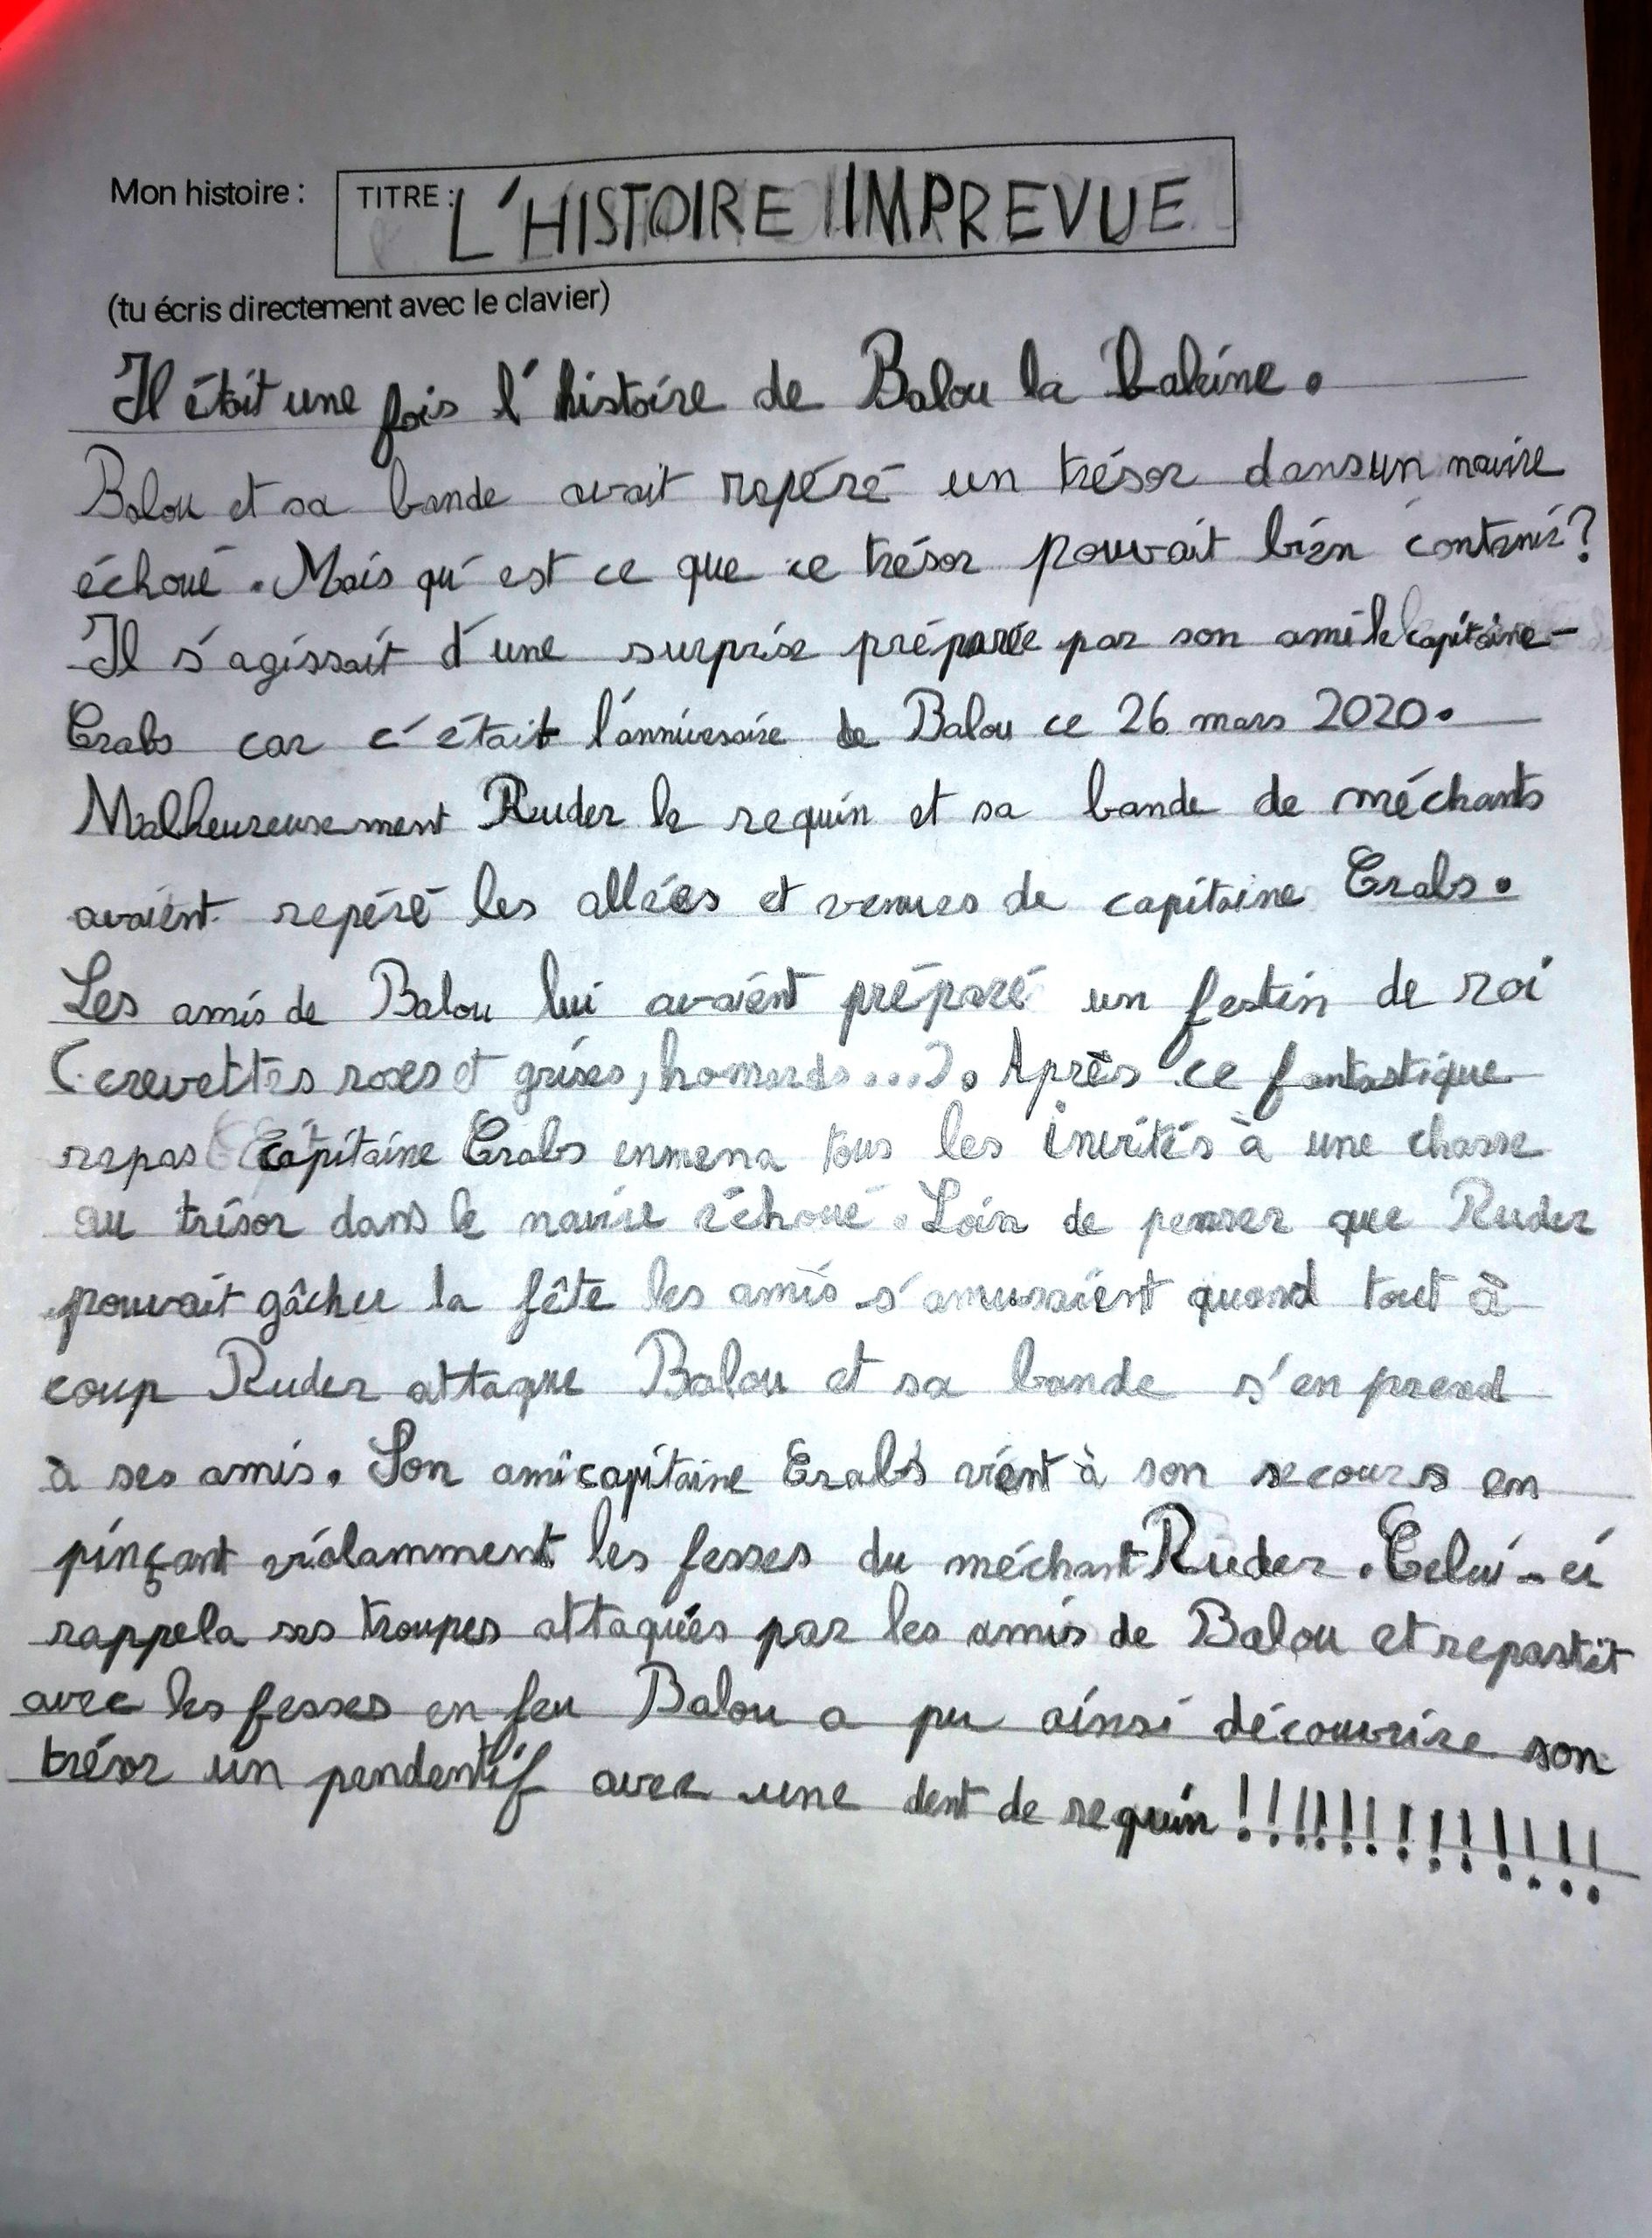 Mon histoire : TITRE : L'HISTOIRE IMPREVUE
(tu écris directement avec le clavier)
Il était une fois l'histoire de Balou la baleine.
Balou et sa bande avait repéré un trésor dans un navire
échoué. Mais qu'est ce que ce trésor pouvait bien contenir?
Il s'agissait d'une surprise préparée par son ami le capitaine
Crabs car c'était l'anniversaire de Balou ce 26 mars 2020.
Malheureusement Ruder le requin et sa bande de méchants
avaient repéré les allées et venues de capitaine Crabs.
Les amis de Balou lui avaient préparé un festin de roi
(crevettes roses et grises, homards...). Après ce fantastique
repas capitaine Crabs enmena tous les invités à une chasse
au trésor dans le navire échoué. Loin de penser que Ruder
pouvait gâcher la fête les amis s'amusaient quand tout à
coup Ruder attaque Balou et sa bande s'en prend
à ses amis. Son ami capitaine Crabs vient à son secours en
pinçant violamment les fesses du méchant Ruder. Celui-ci
rappela ses troupes attaquées par les amis de Balou et repartit
avec les fesses en feu Balou a pu ainsi découvrire son
trésor un pendentif avec une dent de requin !!!!!!!!!!!!!!